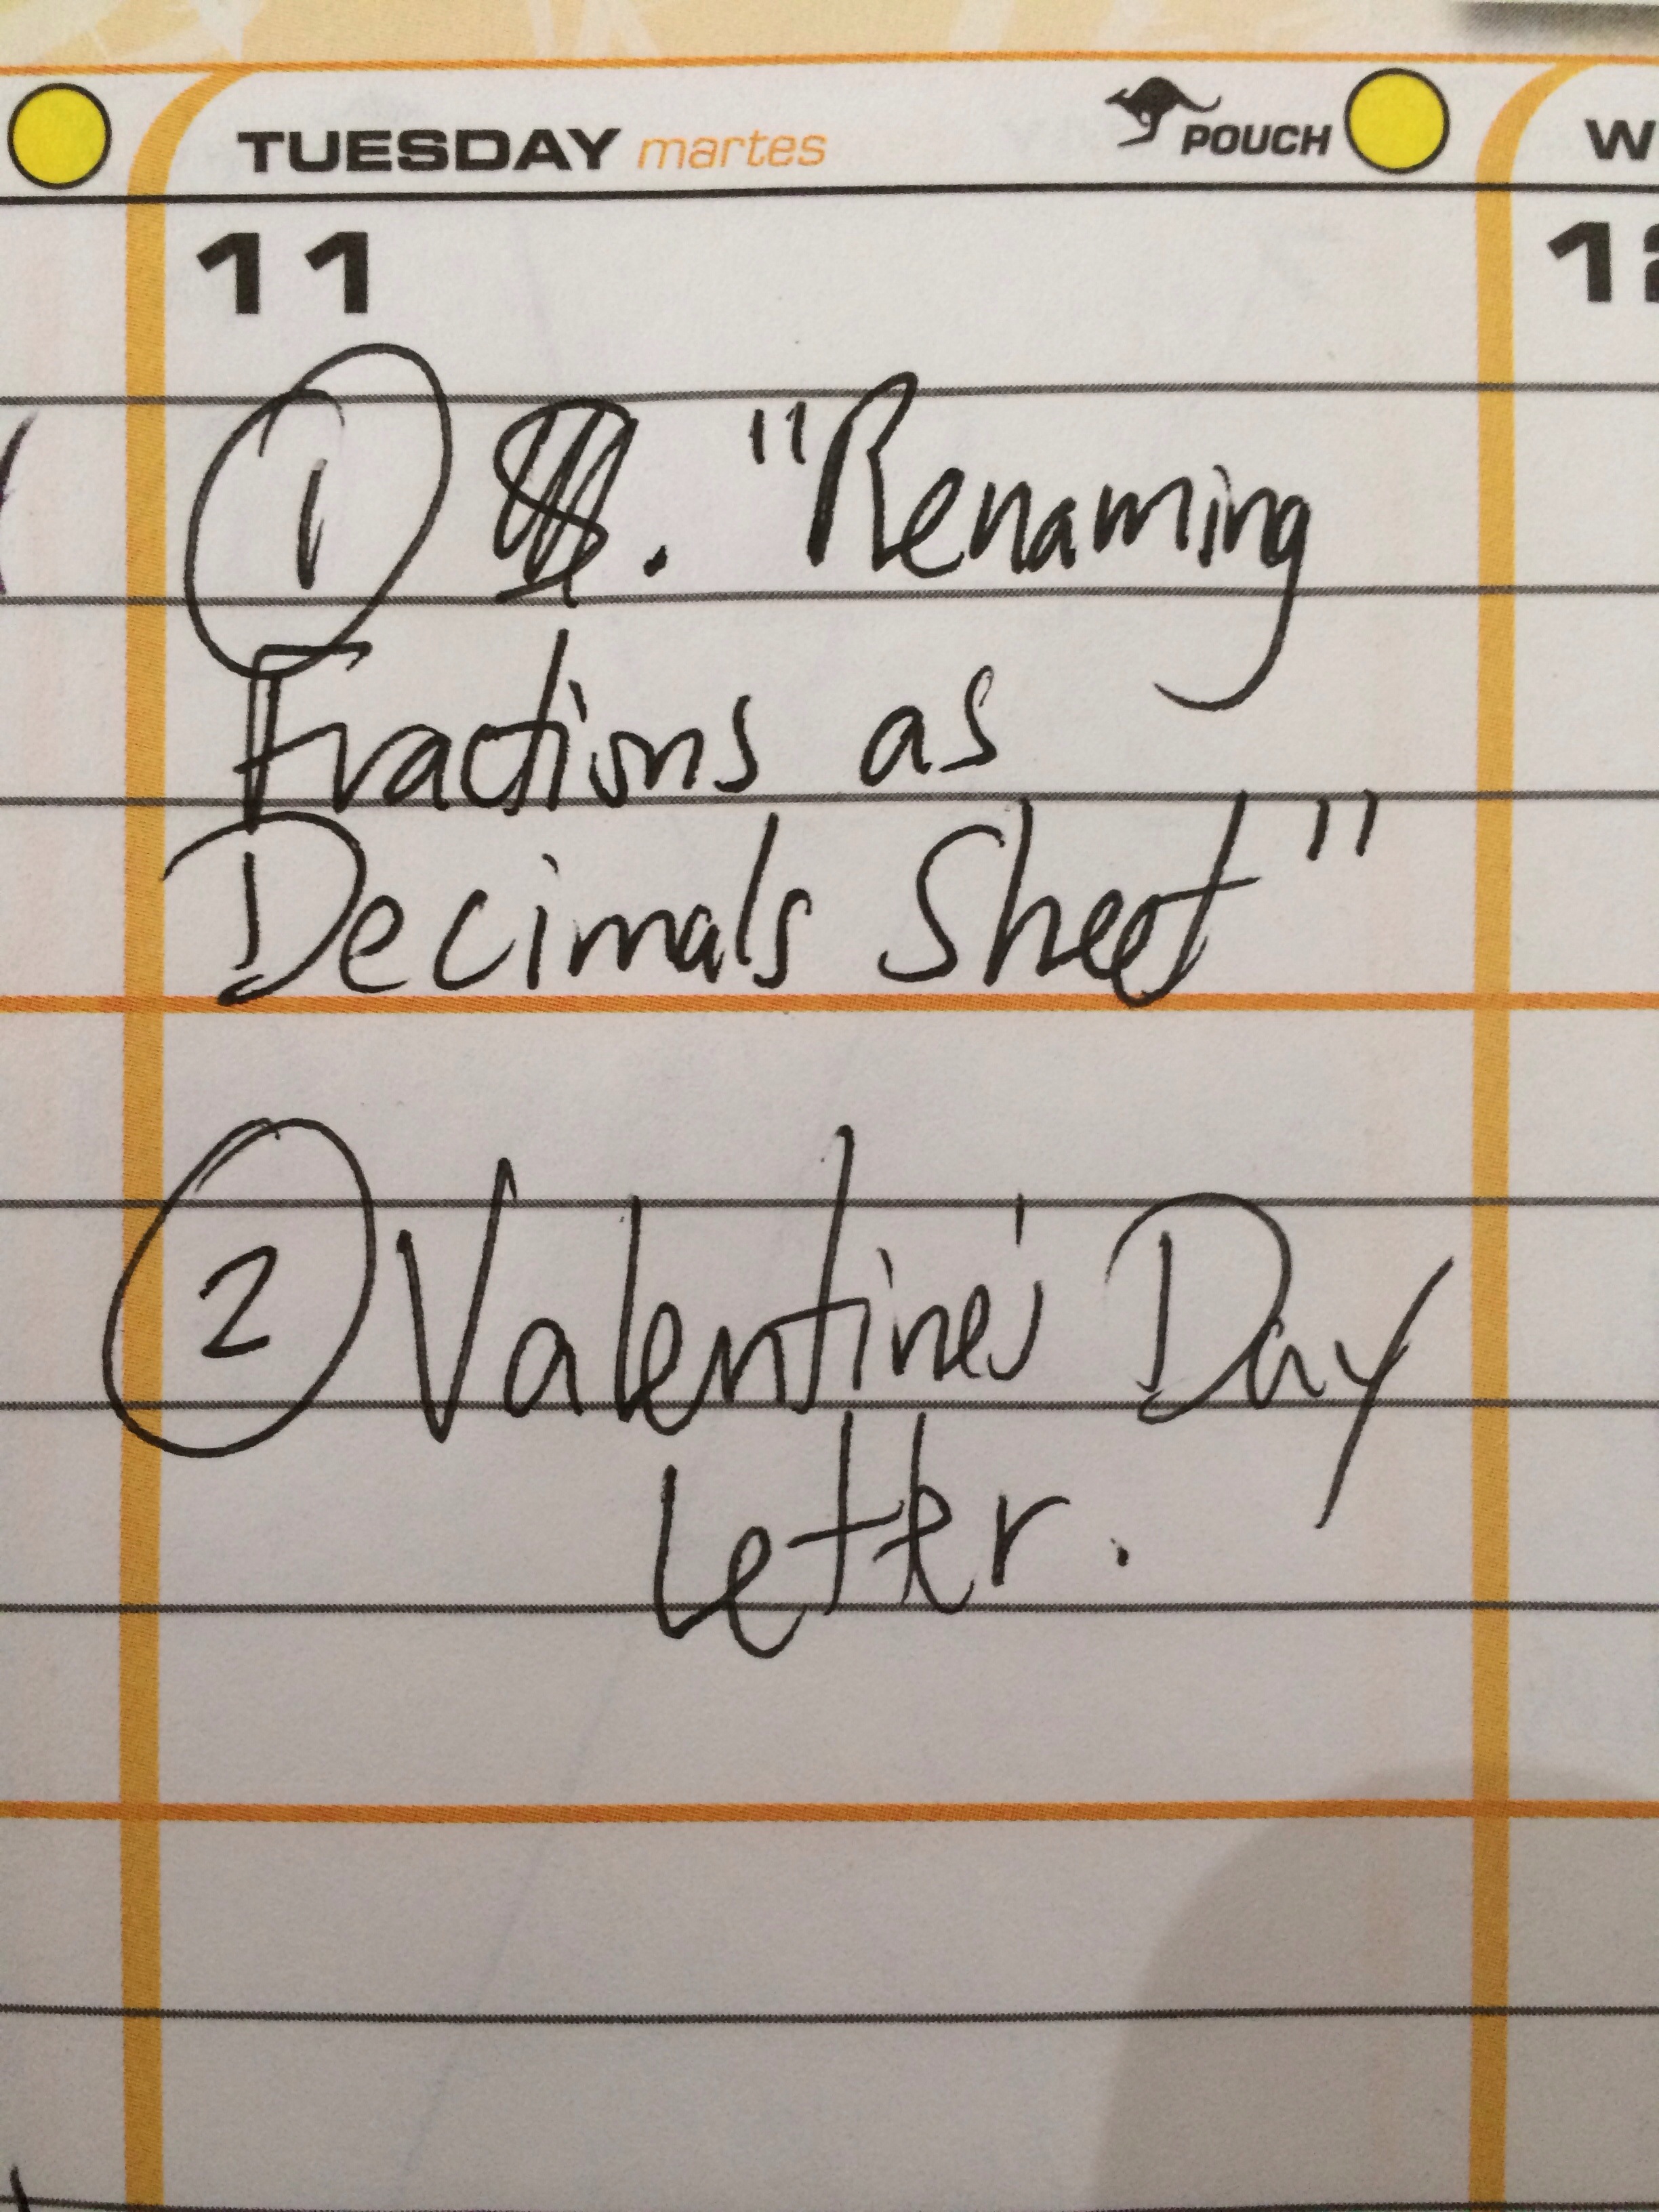 TUESDAY martes POUCH W
11
① . "Renaming
Fractions as
Decimals Sheet"
② Valentine's Day
Letter.